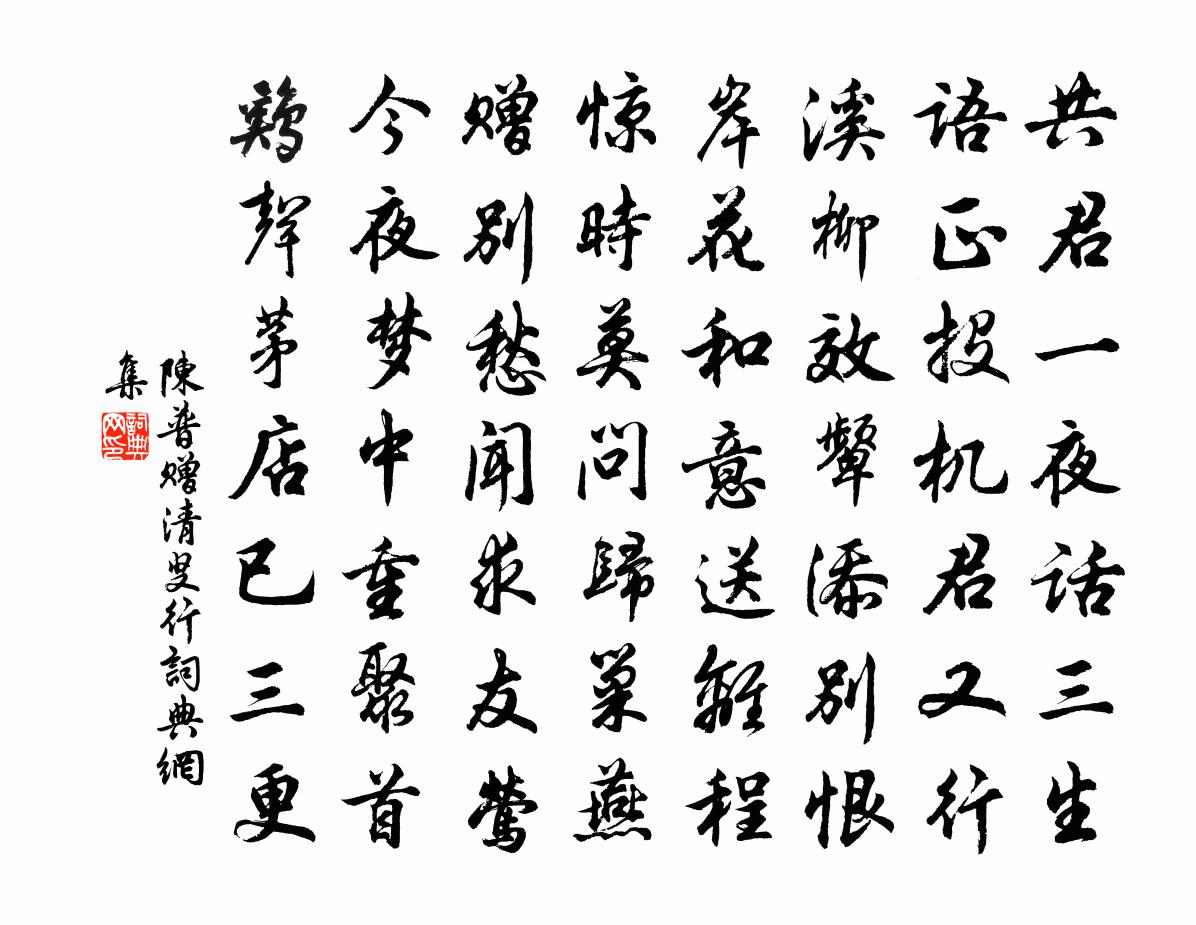 共君一夜话三生
语正投机君又行
溪柳效顰添别恨
岸花和意送離程
惊時莫问歸巢燕
赠别愁闻求友鶯
今夜梦中重聚首
鷄聲茅店已三更
陳普赠清叟行詞典網
集
詞典
网印